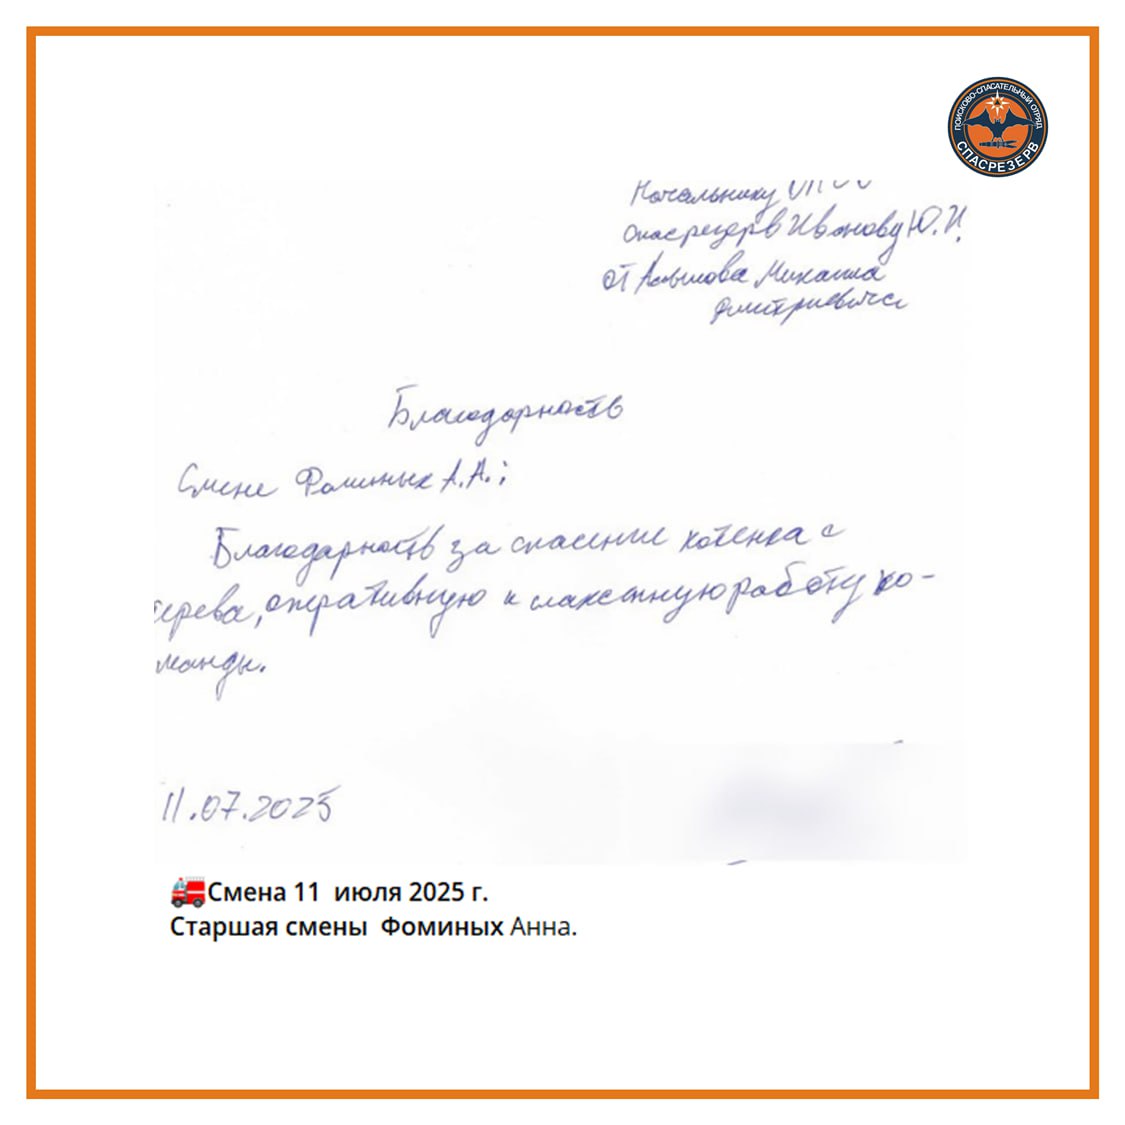 ПОИСКОВО-СПАСАТЕЛЬНЫЙ ОТРЯД
СПАСРЕЗЕРВ
Начальнику
Спасрезерв Иванову Ю.И.
от Михаила
Дмитриевича
Благодарность
Смене Фоминых А.А.:
Благодарность за спасение котенка с
дерева, оперативную и слаженную работу ко-
манды.
11.07.2025
Смена 11 июля 2025 г.
Старшая смены Фоминых Анна.